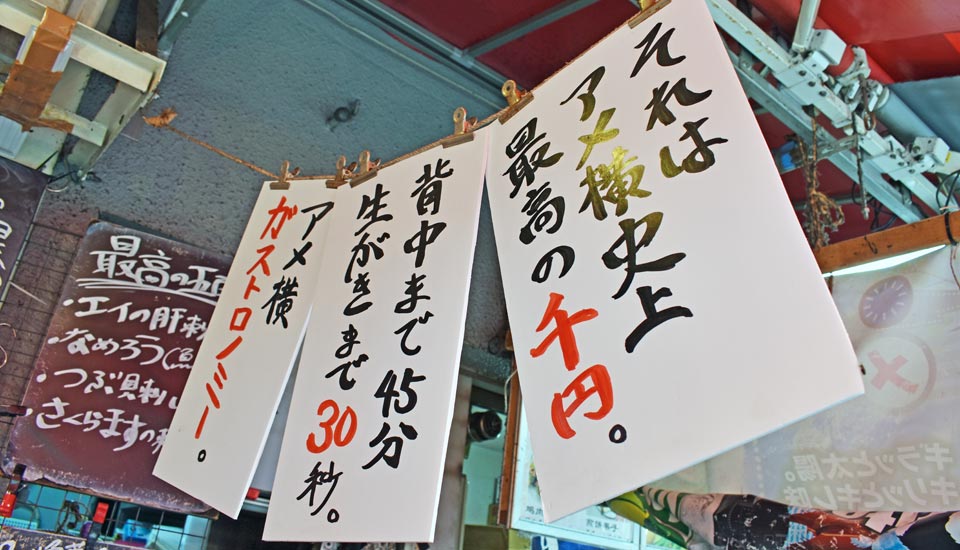 それは
アメ横史上
最高の千円。
背中まで45分
生がきまで
30秒。
アメ横
ガストロノミー。
最高の
・エイの肝刺
・なめろう
・つぶ貝刺
・さくらますの
キラッと太陽。
キリッとキレ味